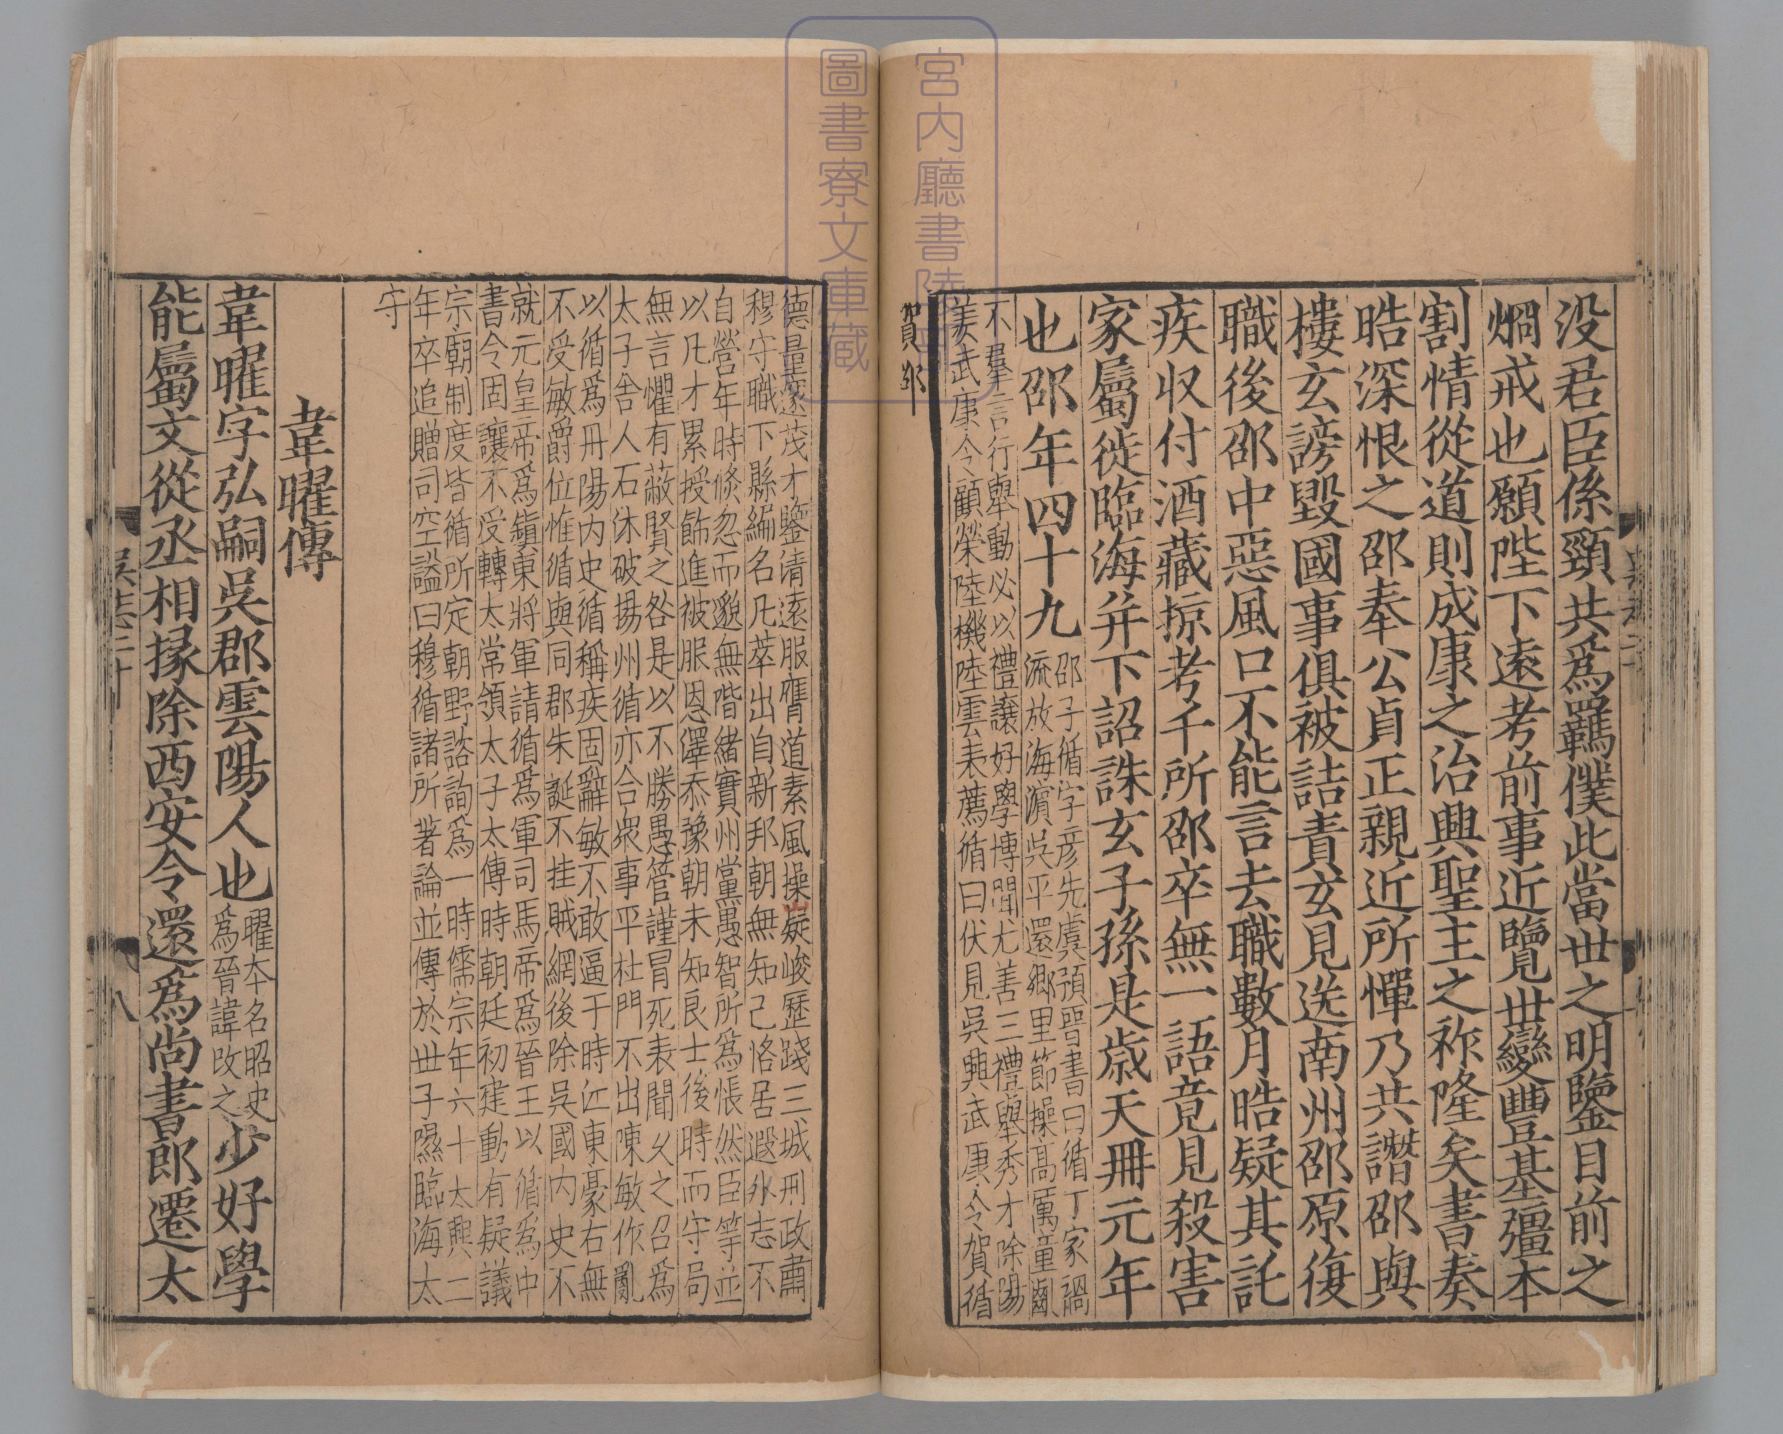 宮内廳書陵部
圖書寮文庫藏
没君臣係頸共爲羈僕此當世之明鑒目前之
烱戒也願陛下遠考前事近覽世變豐基彊本
割情從道則成康之治興聖主之祚隆矣書奏
晧深恨之邵奉公貞正親近所憚乃共譖邵與
樓玄謗毀國事俱被詰責玄見送南州邵原復
職後邵中惡風口不能言去職數月晧疑其託
疾収付酒藏掠考千所邵卒無一語竟見殺害
家屬徙臨海并下詔誅玄子孫是歳天冊元年
也邵年四十九
邵子循字彦先虞預晉書曰循丁家禍
流放海濵吳平還鄉里節操髙厲童齓
不羣言行舉動必以禮讓好學博聞尤善三禮舉秀才除陽
羡武康令顧榮陸機陸雲表薦循曰伏見吳興武康令賀循
賀邵
德量邃茂才鑒清逺服膺道素風操凝峻歷踐三城刑政肅
穆守職下縣編名凡萃出自新邦朝無知己恪居遐外志不
自營年時倐忽而邈無階緒實州黨愚智所爲悵然臣等並
以凡才累授飾進被服恩澤忝豫朝末知良士後時而守局
無言懼有蔽賢之咎是以不勝愚管謹冒死表聞乆之召爲
太子舍人石氷破揚州循亦合衆事平杜門不出陳敏作亂
以循爲丹陽内史循稱疾固辭敏不敢逼于時江東豪右無
不受敏爵位惟循與同郡朱誕不挂賊網後除吳國内史不
就元皇帝爲鎮東將軍請循爲軍司馬帝爲晉王以循爲中
書令固讓不受轉太常領太子太傅時朝廷初建動有疑議
宗朝制度皆循所定朝野諮詢爲一時儒宗年六十太興二
年卒追贈司空謚曰穆循諸所著論並傳於世子隰臨海太
守
韋曜傳
韋曜字弘嗣吳郡雲陽人也
曜本名昭史
爲晉諱改之
少好學
能屬文從丞相掾除西安令還爲尚書郎遷太
吳志二十
八